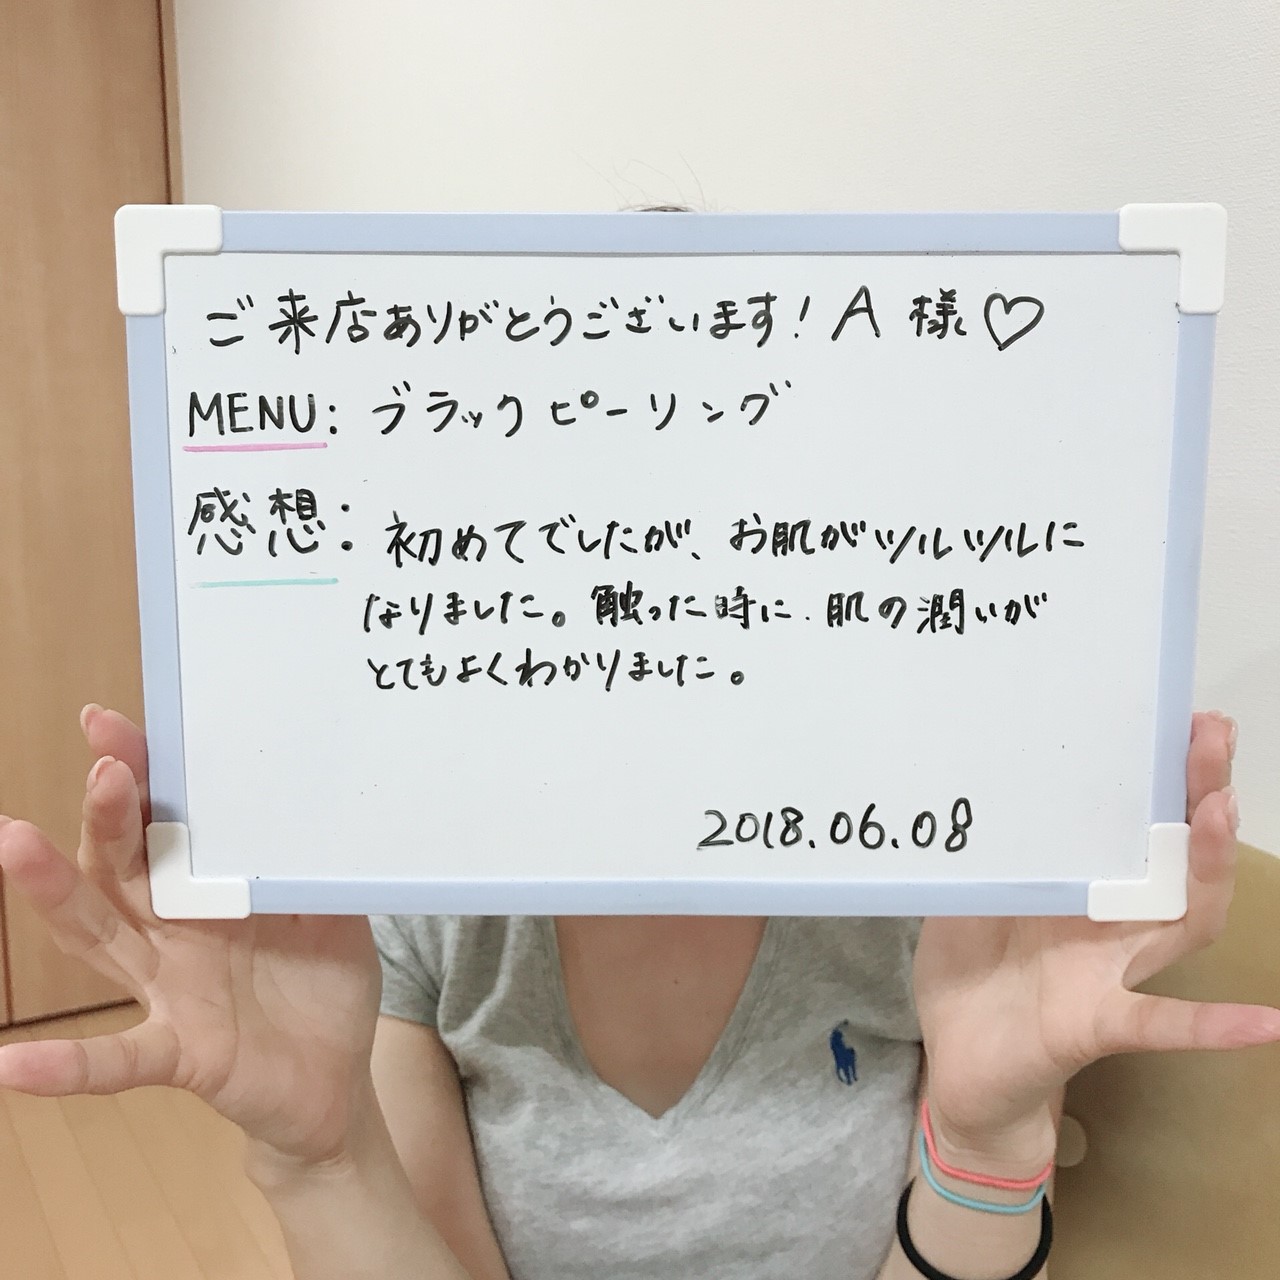 ご来店ありがとうございます！A様♡
MENU: ブラックピーリング
感想: 初めてでしたが、お肌がツルツルに
なりました。触った時に、肌の潤いが
とてもよくわかりました。
2018.06.08